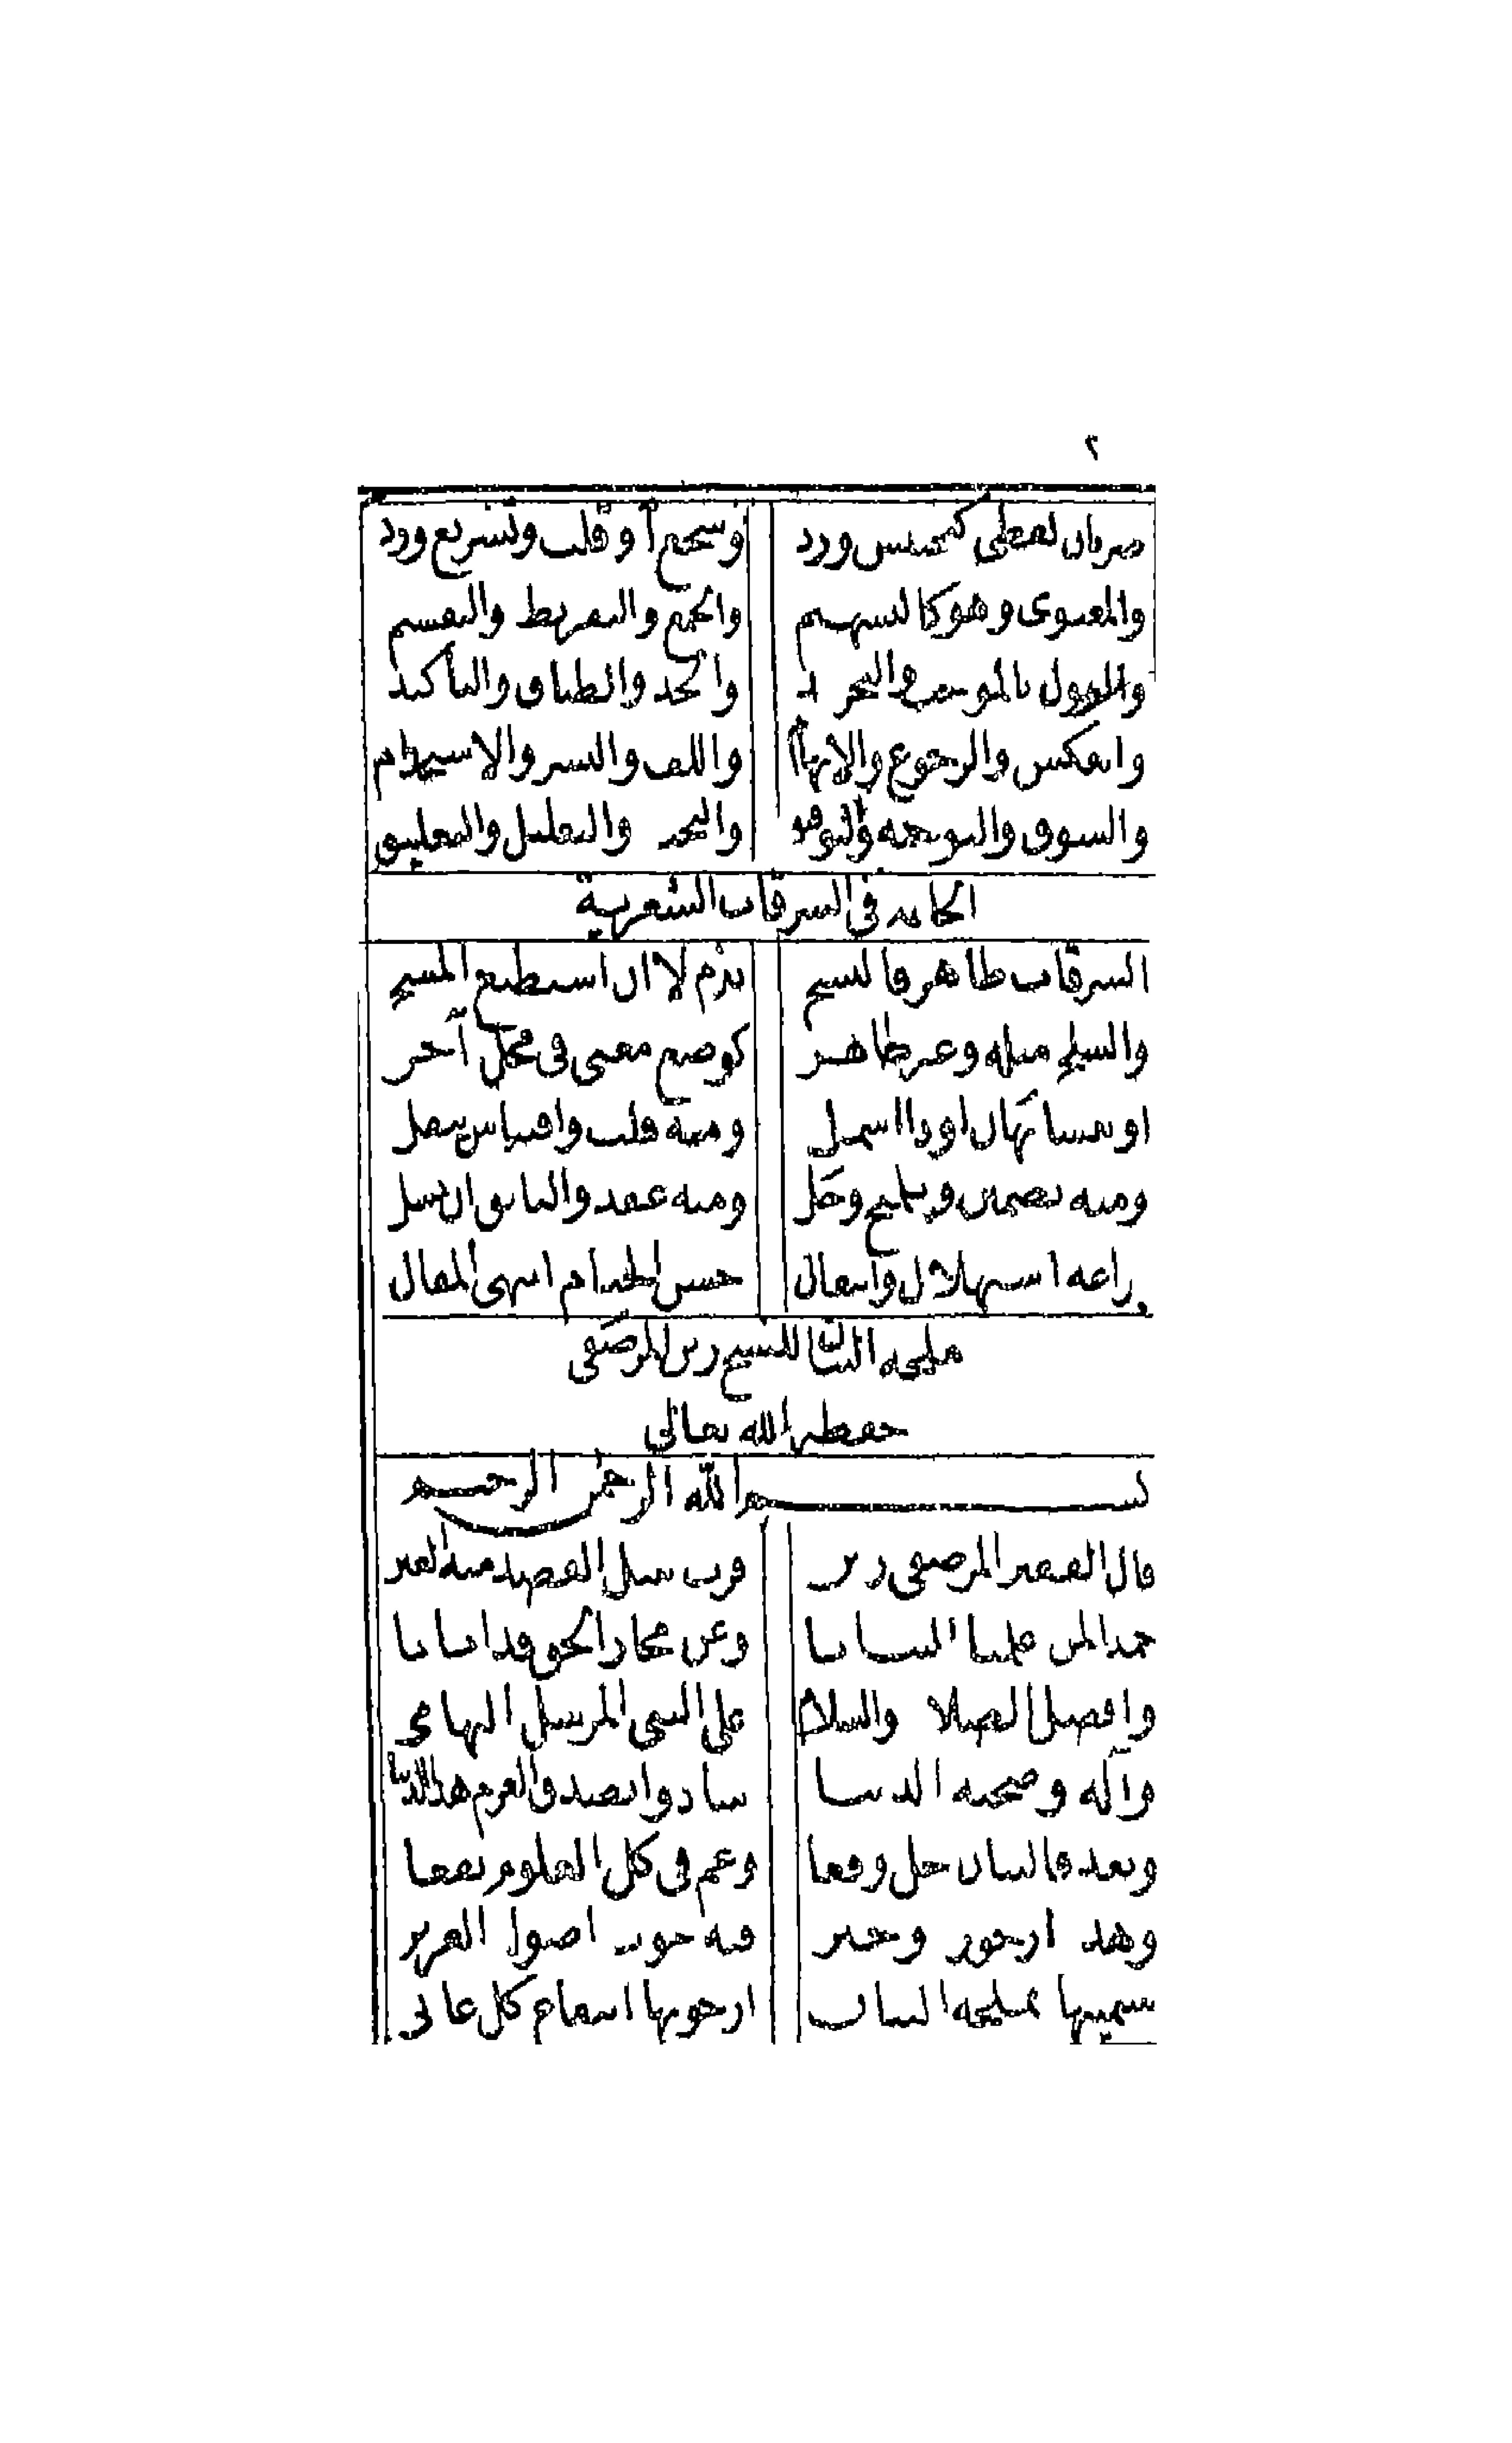 ٢
ضربان لفظي كتجنيس ورد وسجع أو قلب وتشريع وورد
والمعنوي وهو كالتسهيم والجمع والتفريق والتقسيم
والقول بالموجب والتجريد والجد والطباق والتأكيد
والعكس والرجوع والإيهام واللف والنشر والاستخدام
والسوق والتوجيه والتوفيق والبحث والتعليل والتعليق
الخاتمة في السرقات الشعرية
السرقات ظاهر فالنسخ يذم لا ان استطيع المسخ
والسلخ مثله وغير ظاهر كوضع معنى في محل آخر
او يتشابهان او ذا اشمل ومنه قلب واقتباس ينقل
ومنه تضمين وتلميح وحل ومنه عقد والتأنق ان تسل
براعة استهلال وانتقال حسن الختام انتهى المقال
مليحة البيان للشيخ زين المرصفي
حفظه الله تعالى
بسم الله الرحمن الرحيم
قال الفقير المرصفي زين قرب سبل القصد منه العين
حمدا لمن علمنا البيانا وعن مجاز الحق قد ابانا
وافضل الصلاة والسلام على النبي المرسل التهامي
وآله وصحبه سادوا بصدق العزم هذا
وبعد فالبيان جل وقعا وعم في كل العلوم نفعا
وهذه ارجوزة فيه حوت اصول
سميتها مليحة البيان ارجو بها كل عاني